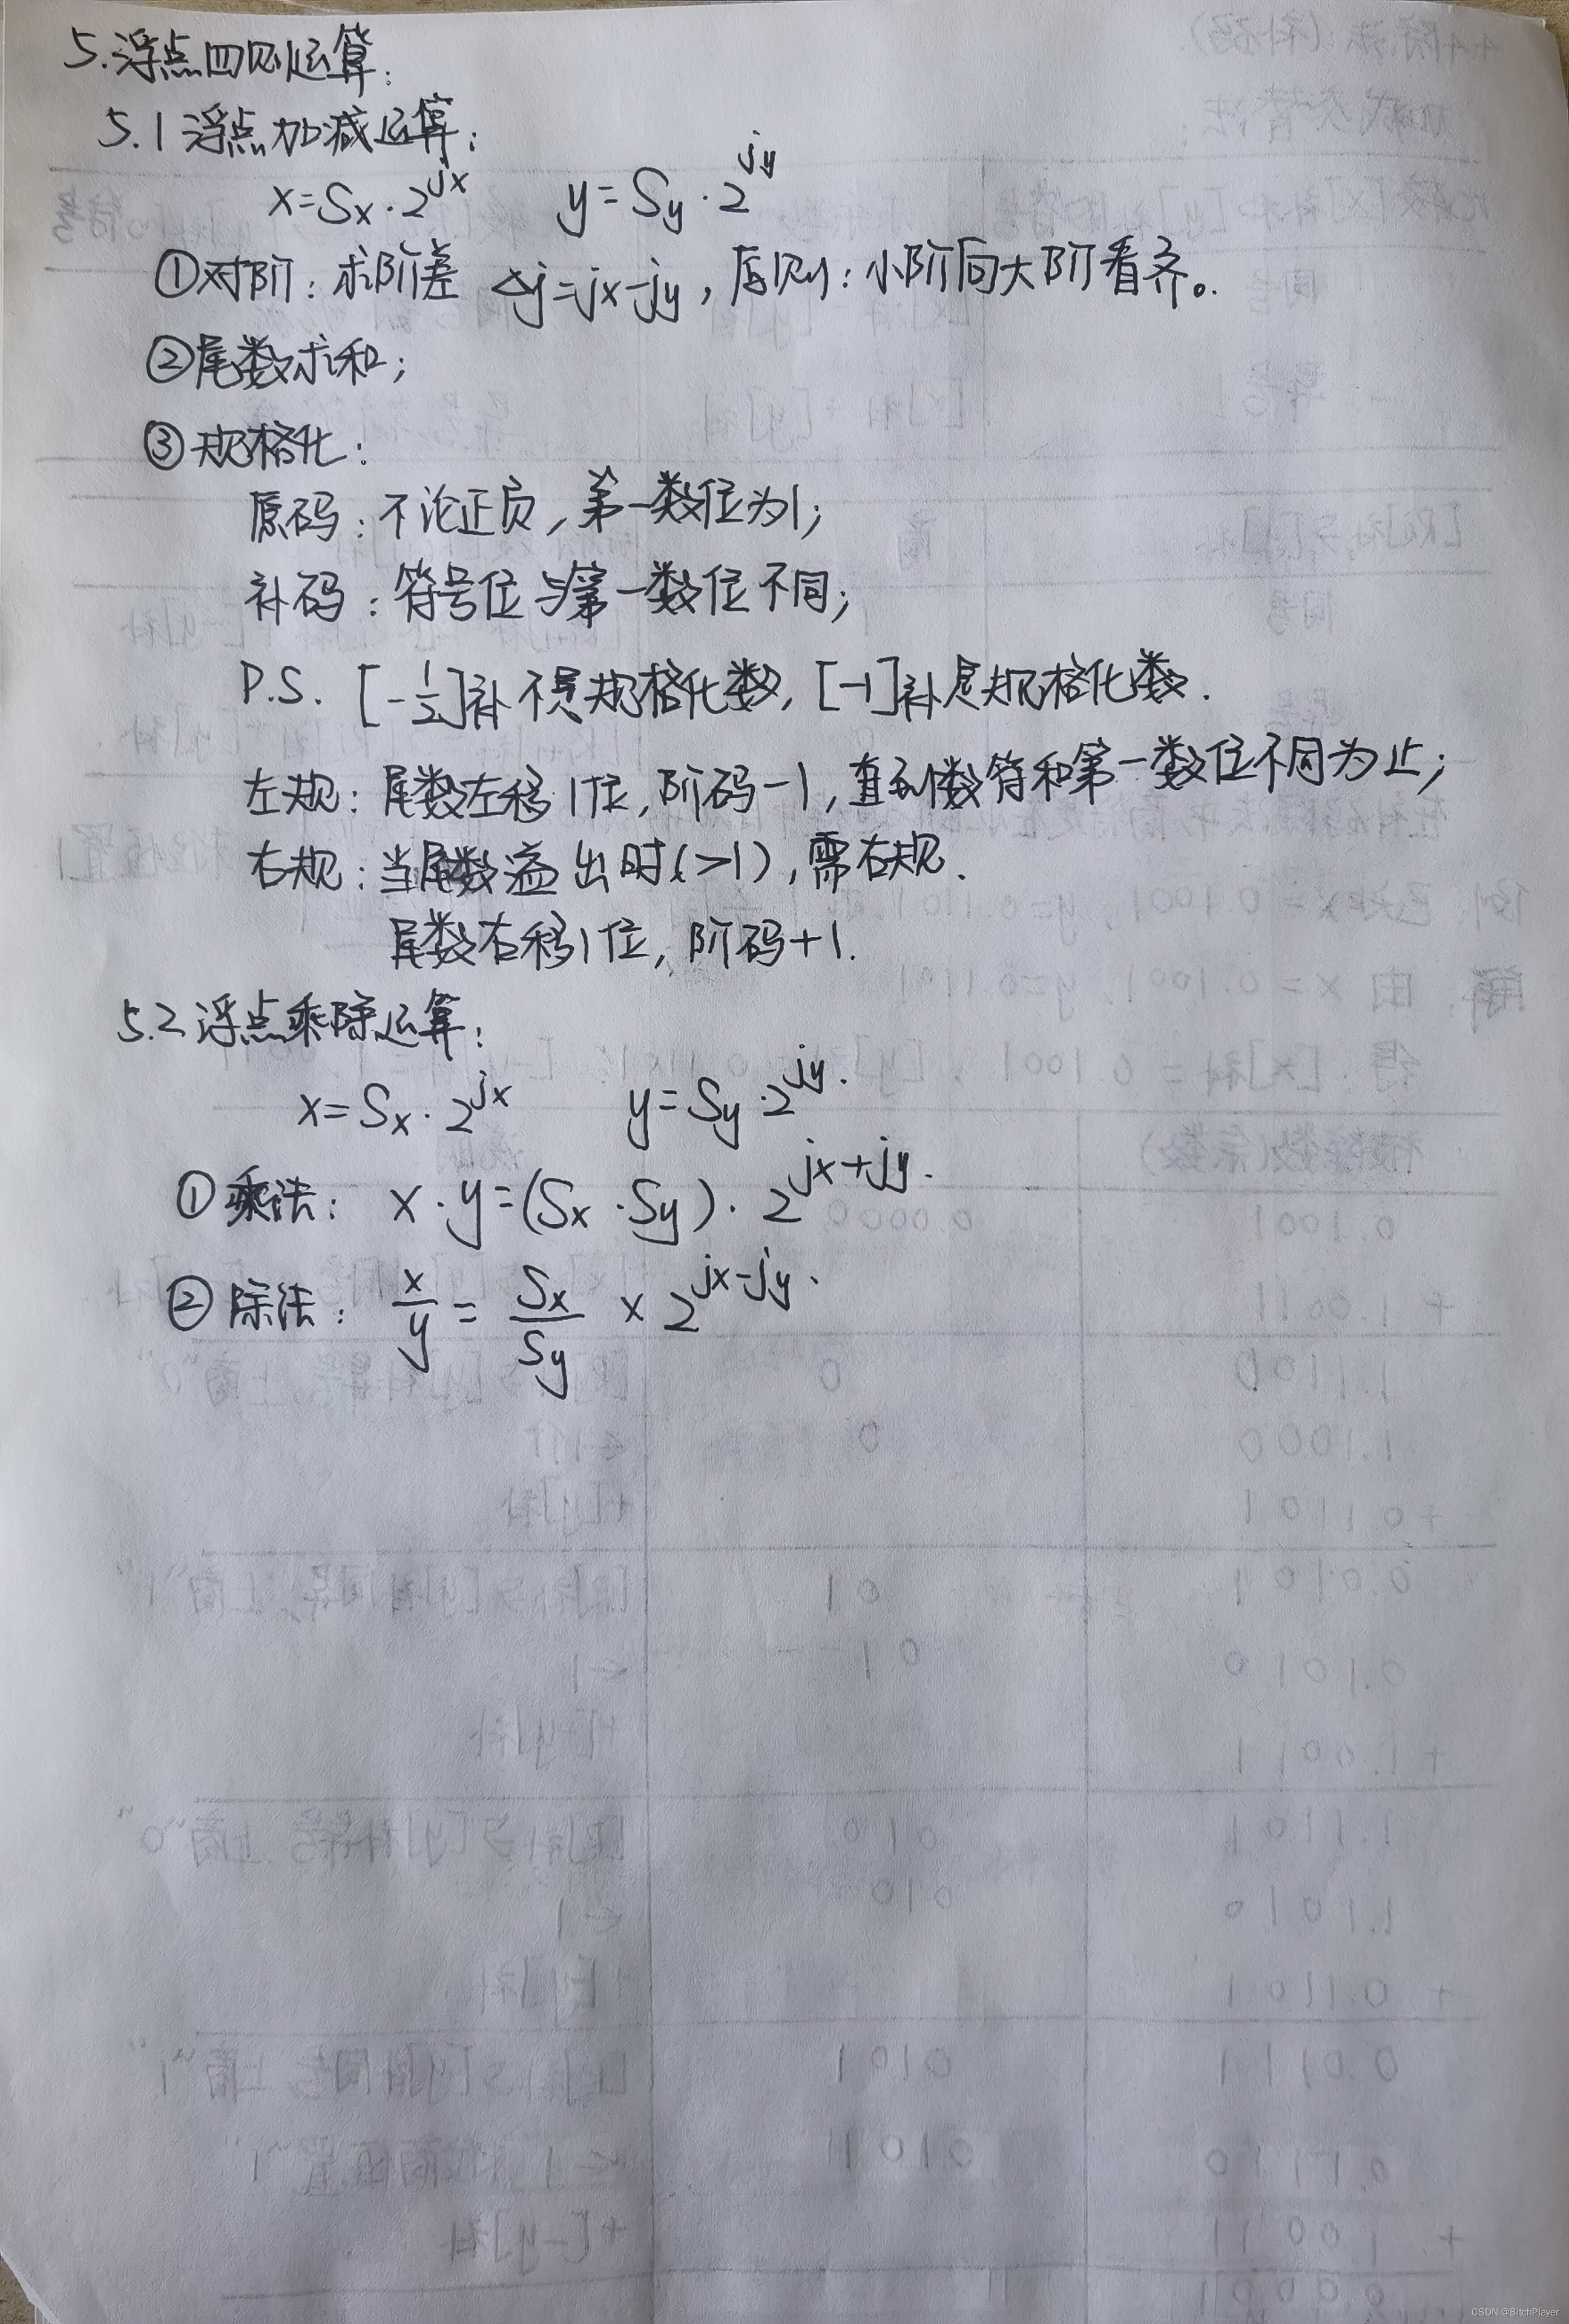 5.浮点四则运算:
5.1 浮点加减运算:
x=Sx·2^jx y=Sy·2^jy
①对阶:求阶差 Δj=jx-jy,原则:小阶向大阶看齐。
②尾数求和;
③规格化:
原码:不论正负,第一数位为1;
补码:符号位与第一数位不同;
P.S. [-1/2]补不是规格化数,[-1]补是规格化数.
左规:尾数左移1位,阶码-1,直到数符和第一数位不同为止;
右规:当尾数溢出时(>1),需右规.
尾数右移1位,阶码+1.
5.2 浮点乘除运算:
x=Sx·2^jx y=Sy·2^jy.
①乘法: x·y=(Sx·Sy)·2^jx+jy.
②除法: x/y = Sx/Sy × 2^jx-jy.
CSDN @BitchPlayer